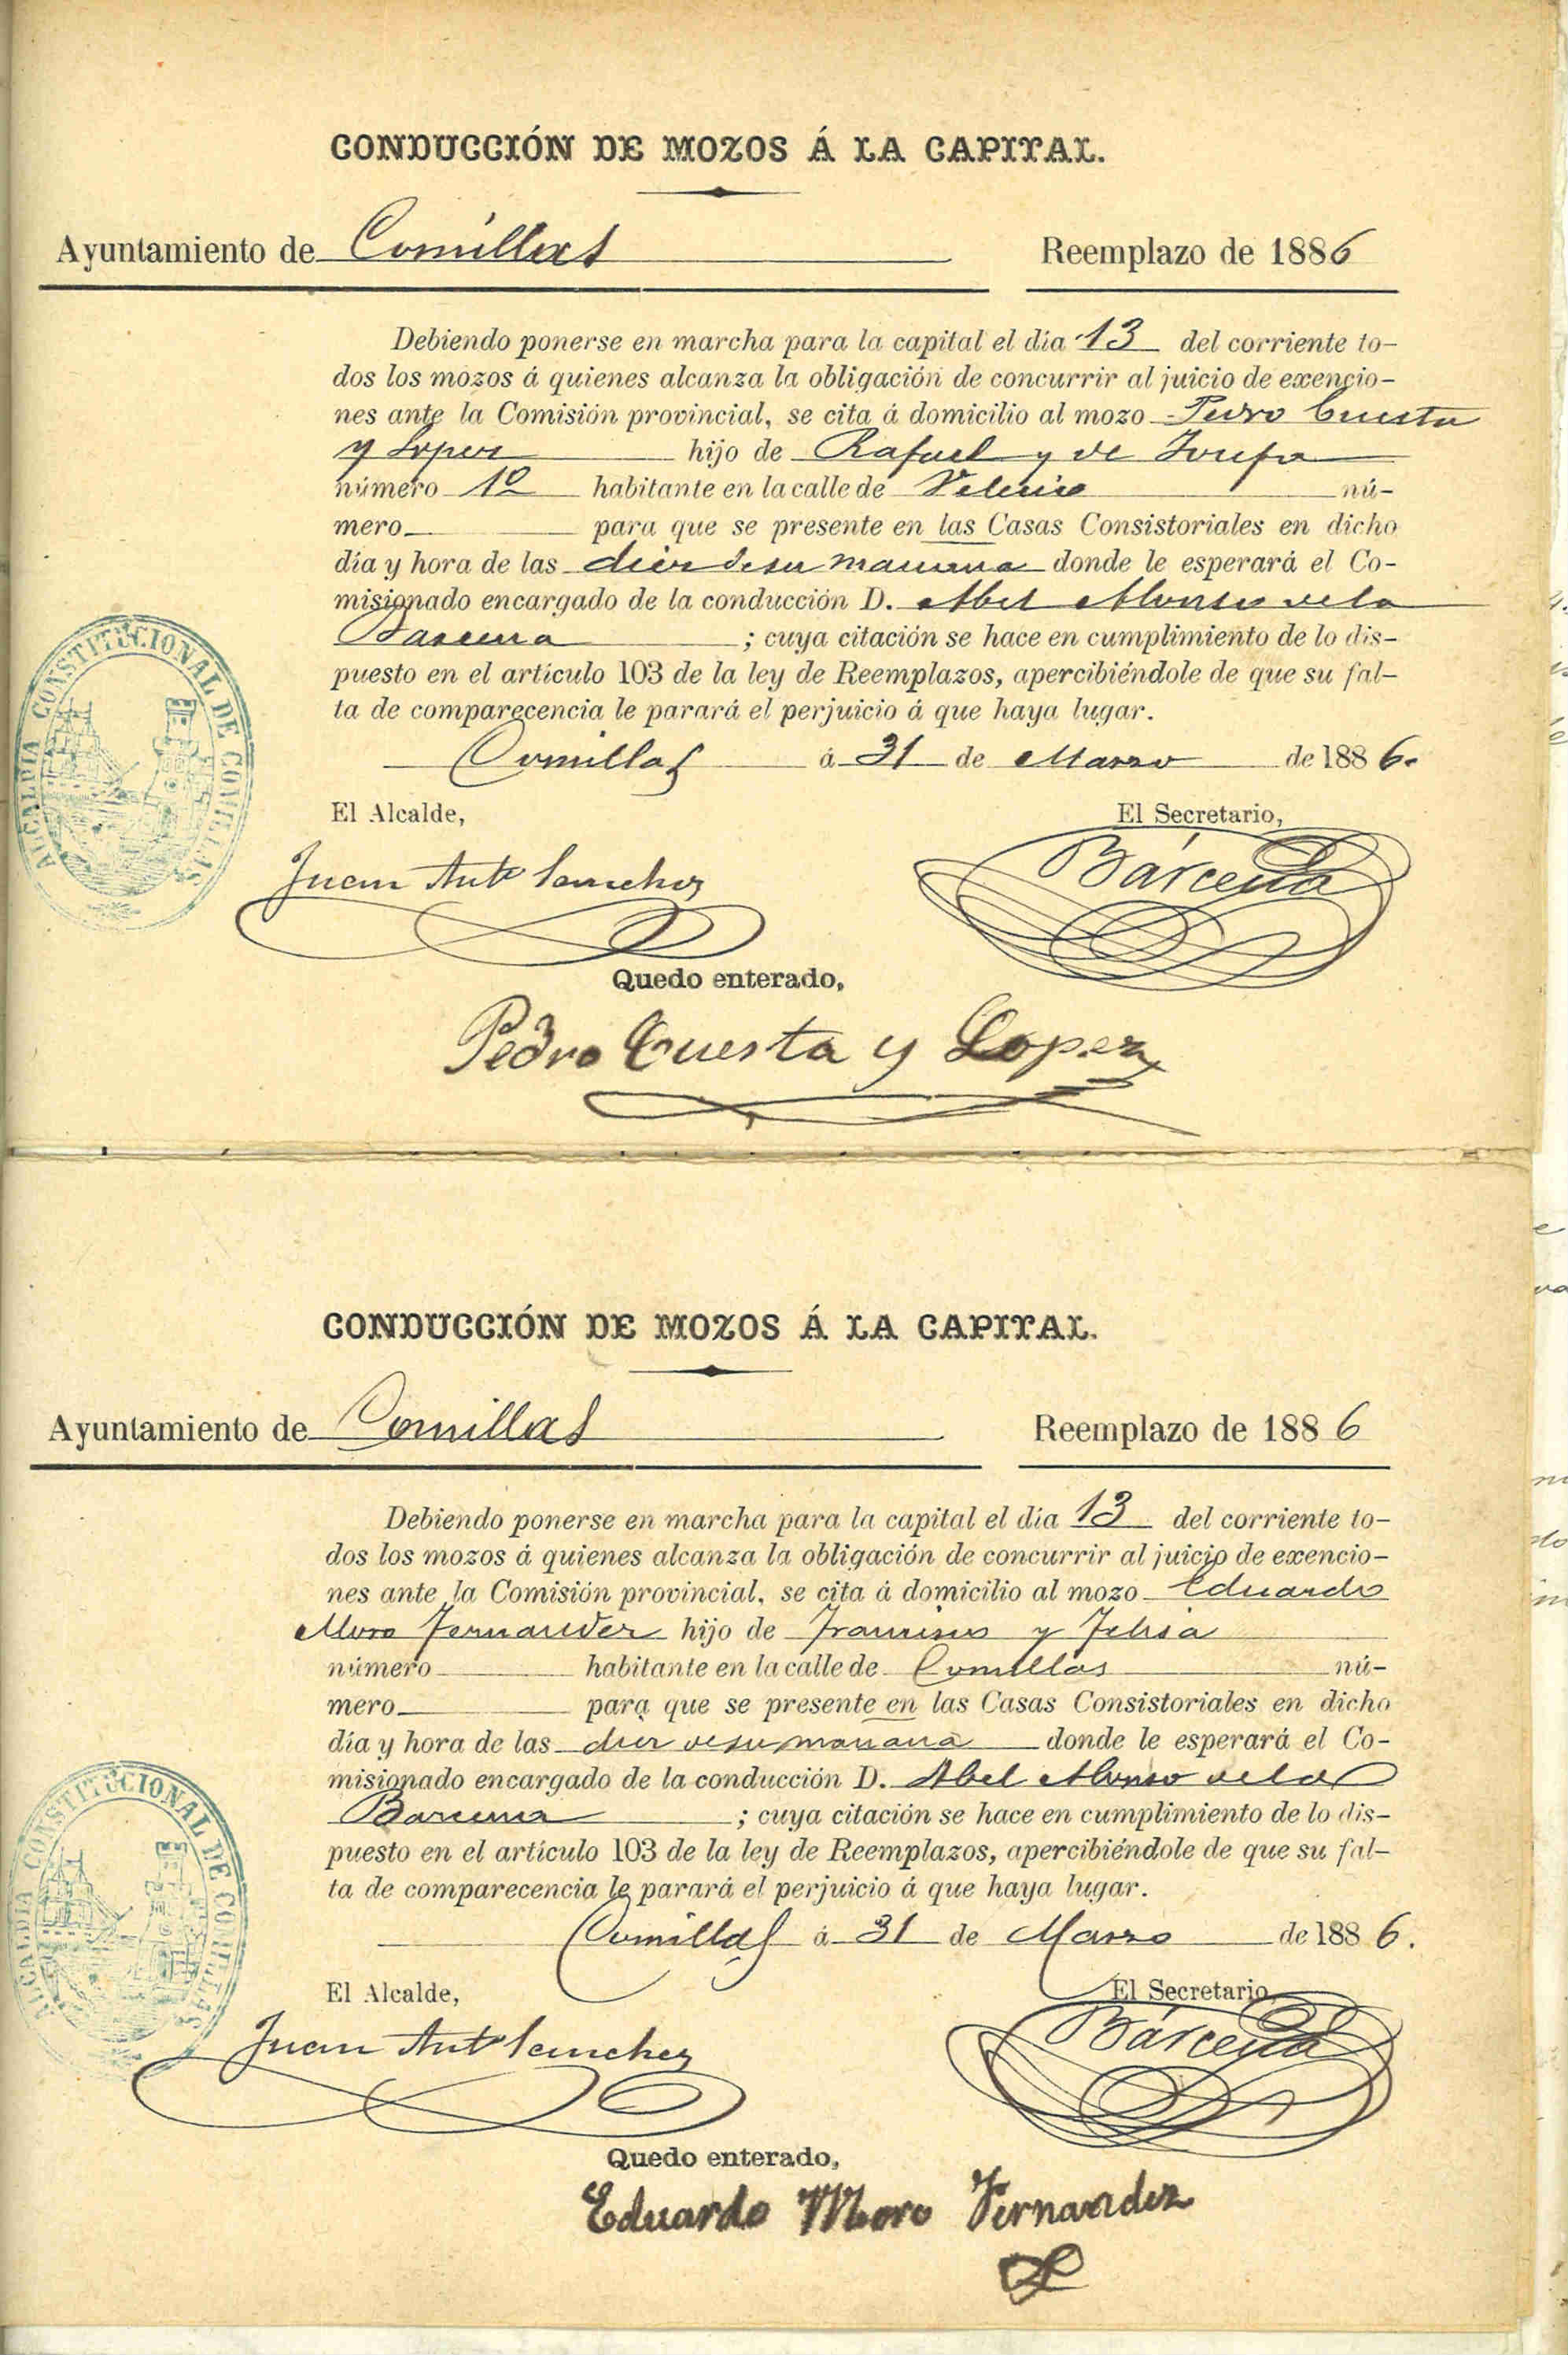 CONDUCCIÓN DE MOZOS Á LA CAPITAL.
Ayuntamiento de Comillas Reemplazo de 1886
Debiendo ponerse en marcha para la capital el día 13 del corriente to-
dos los mozos á quienes alcanza la obligación de concurrir al juicio de exencio-
nes ante la Comisión provincial, se cita á domicilio al mozo Pedro Cuesta
y Lopez hijo de Rafael y de Josefa
número 1º habitante en la calle de nú-
mero para que se presente en las Casas Consistoriales en dicho
día y hora de las diez de su mañana donde le esperará el Co-
misionado encargado de la conducción D. Abel Alonso de la
Barcena ; cuya citación se hace en cumplimiento de lo dis-
puesto en el artículo 103 de la ley de Reemplazos, apercibiéndole de que su fal-
ta de comparecencia le parará el perjuicio á que haya lugar.
Comillas á 31 de Marzo de 1886.
El Alcalde, El Secretario,
Juan Antº Sanchez Bárcena
Quedo enterado,
Pedro Cuesta y Lopez
ALCALDÍA CONSTITUCIONAL DE COMILLAS
CONDUCCIÓN DE MOZOS Á LA CAPITAL.
Ayuntamiento de Comillas Reemplazo de 1886
Debiendo ponerse en marcha para la capital el día 13 del corriente to-
dos los mozos á quienes alcanza la obligación de concurrir al juicio de exencio-
nes ante la Comisión provincial, se cita á domicilio al mozo Eduardo
Moro Fernandez hijo de Francisco y Felisa
número habitante en la calle de Comillas nú-
mero para que se presente en las Casas Consistoriales en dicho
día y hora de las diez de su mañana donde le esperará el Co-
misionado encargado de la conducción D. Abel Alonso de la
Barcena ; cuya citación se hace en cumplimiento de lo dis-
puesto en el artículo 103 de la ley de Reemplazos, apercibiéndole de que su fal-
ta de comparecencia le parará el perjuicio á que haya lugar.
Comillas á 31 de Marzo de 1886.
El Alcalde, El Secretario
Juan Antº Sanchez Bárcena
Quedo enterado,
Eduardo Moro Fernandez
ALCALDÍA CONSTITUCIONAL DE COMILLAS